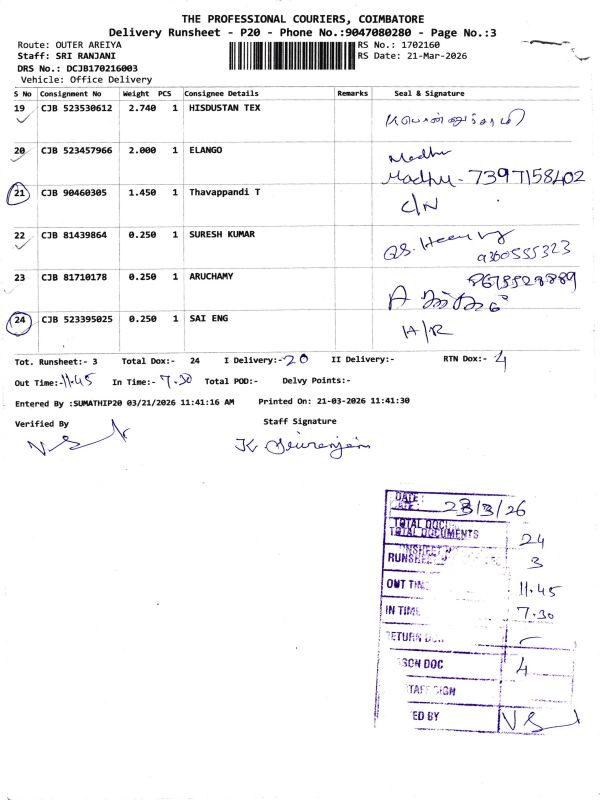 THE PROFESSIONAL COURIERS, COIMBATORE
Delivery Runsheet - P20 - Phone No.:9047080280 - Page No.:3
Route: OUTER AREIYA
Staff: SRI RANJANI
DRS No.: DCJB170216003
Vehicle: Office Delivery
RS No.: 1702160
RS Date: 21-Mar-2026
S No Consignment No Weight PCS Consignee Details Remarks Seal & Signature
19 CJB 523530612 2.740 1 HISDUSTAN TEX
20 CJB 523457966 2.000 1 ELANGO Madhu
Madhu - 7397158402
21 CJB 90460305 1.450 1 Thavappandi T C/N
22 CJB 81439864 0.250 1 SURESH KUMAR
9360555323
23 CJB 81710178 0.250 1 ARUCHAMY
24 CJB 523395025 0.250 1 SAI ENG H/R
Tot. Runsheet:- 3 Total Dox:- 24 I Delivery:- 20 II Delivery:- RTN Dox:- 4
Out Time:- 11.45 In Time:- 7.30 Total POD:- Delvy Points:-
Entered By :SUMATHIP20 03/21/2026 11:41:16 AM Printed On: 21-03-2026 11:41:30
Verified By Staff Signature
DATE: 23/3/26
TOTAL DOCUMENTS 24
3
OUT 11.45
IN TIME 7.30
DOC 4
ED BY